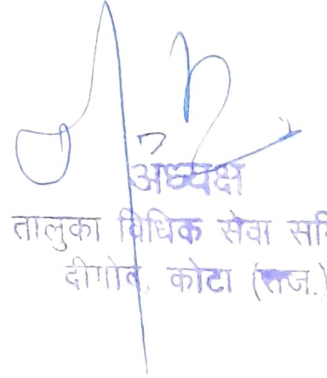 अध्यक्ष
तालुका विधिक सेवा समि
दीगोद, कोटा (राज.)